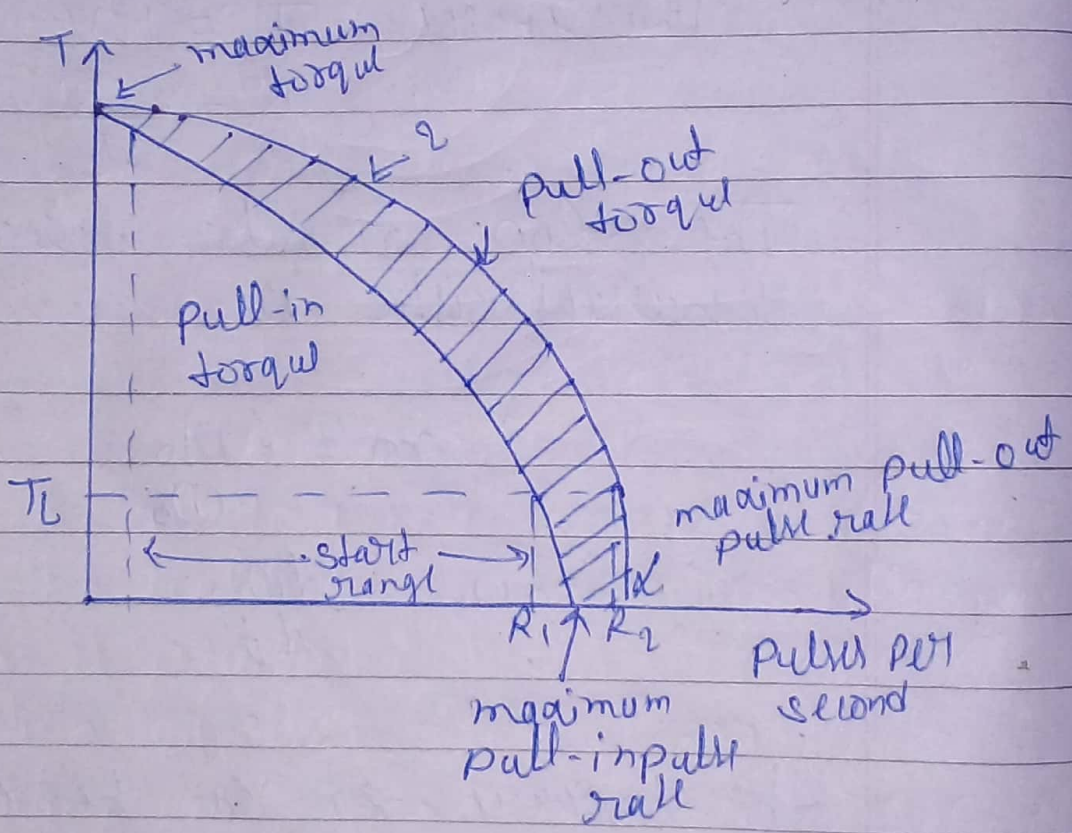 T
maximum
torque
2
pull-out
torque
pull-in
torque
TL
start
range
maximum pull-out
pulse rate
R1
R2
pulses per
second
maximum
pull-in pulse
rate